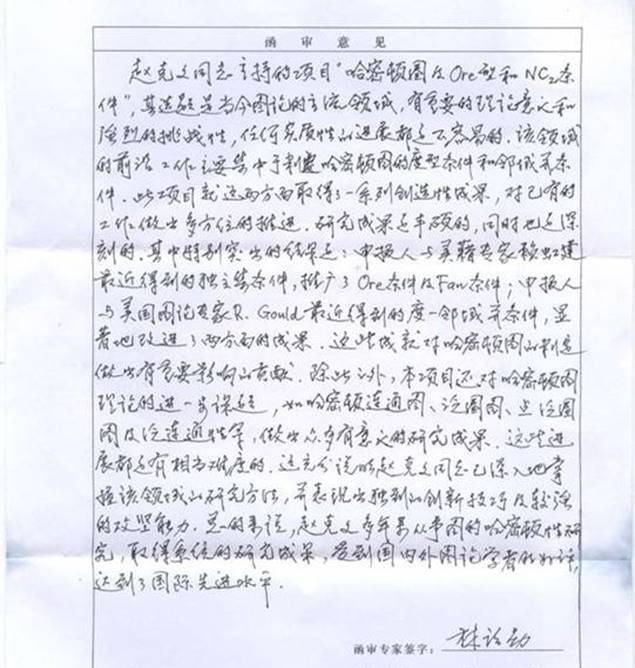 函审意见
赵克文同志主持的项目"哈密顿图及Ore型和NC2条
件",其选题是当今图论的主流领域,有重要的理论意义和
强烈的挑战性,任何实质性的进展都是不容易的.该领域
的前沿工作主要集中于判定哈密顿图的度型条件和邻域并条
件.此项目就这两方面取得了一系列创造性成果,对已有的
工作做出多方位的推进.研究成果是丰硕的,同时也是深
刻的.其中特别突出的结果是:申报人与美籍专家赖虹建
最近得到的独立集条件,推广了Ore条件及Fan条件;申报人
与美国图论专家R. Gould最近得到的度一邻域并条件,显
著地改进了两方面的成果.这些成就对哈密顿图的判定
做出有重要影响的贡献.除此之外,本项目还对哈密顿图
理论的进一步课题,如哈密顿连通图、泛圈图、点泛圈
图及泛连通性等,做出众多有意义的研究成果.这些进
展都是有相当难度的.这充分说明赵克文同志已深入地掌
握该领域的研究方法,并表现出独到的创新技巧及较强
的攻坚能力.总的来说,赵克文多年来从事图的哈密顿性研
究,取得系统的研究成果,受到国内外图论学者的好评,
达到了国际先进水平.
函审专家签字:林诒勋